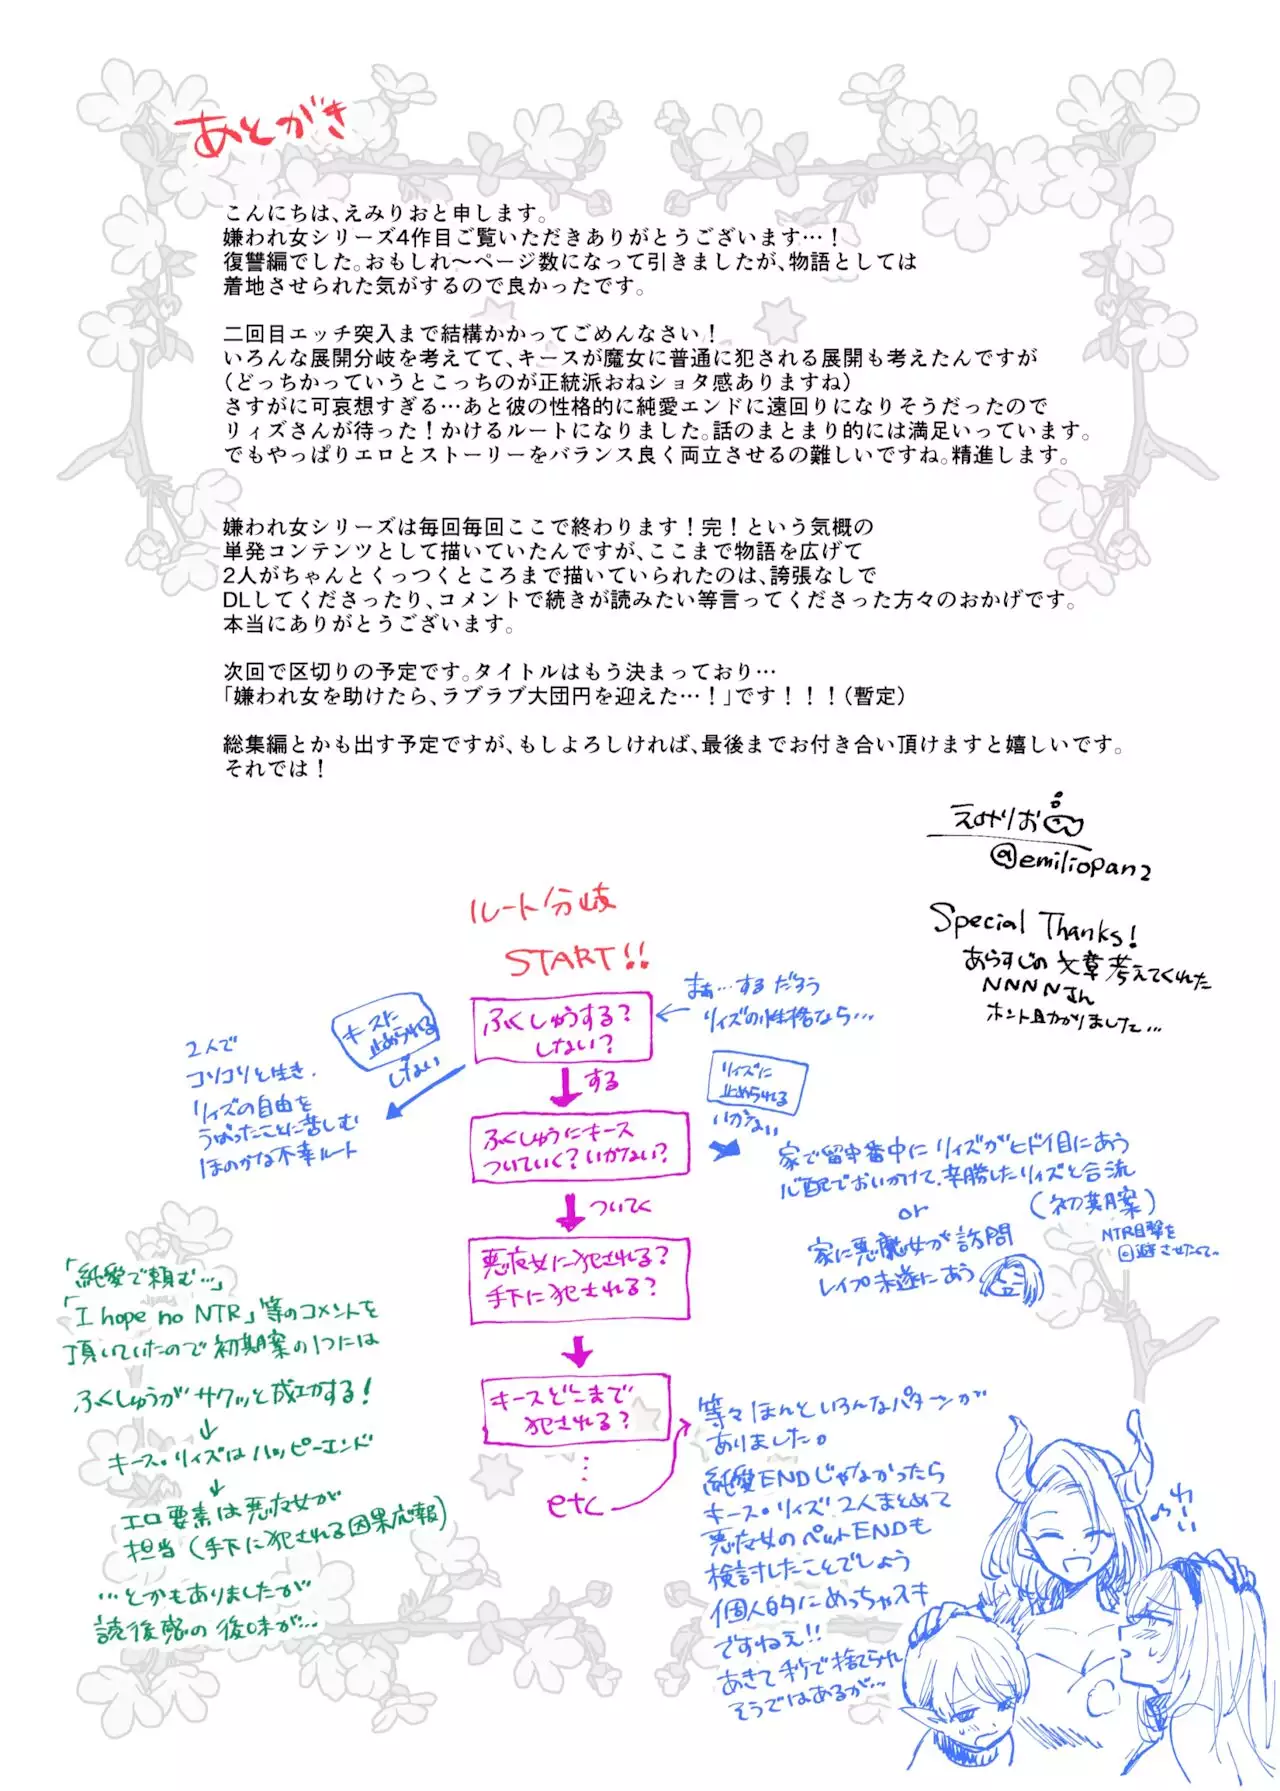 あとがき
こんにちは、えみりおと申します。
嫌われ女シリーズ4作目ご覧いただきありがとうございます…！
復讐編でした。おもしれ～ページ数になって引きましたが、物語としては
着地させられた気がするので良かったです。
二回目エッチ突入まで結構かかってごめんなさい！
いろんな展開分岐を考えてて、キースが魔女に普通に犯される展開も考えたんですが
（どっちかっていうとこっちのが正統派おねショタ感ありますね）
さすがに可哀想すぎる…あと彼の性格的に純愛エンドに遠回りになりそうだったので
リィズさんが待った！かけるルートになりました。話のまとまり的には満足いっています。
でもやっぱりエロとストーリーをバランス良く両立させるの難しいですね。精進します。
嫌われ女シリーズは毎回毎回ここで終わります！完！という気概の
単発コンテンツとして描いていたんですが、ここまで物語を広げて
2人がちゃんとくっつくところまで描いていられたのは、誇張なしで
DLしてくださったり、コメントで続きが読みたい等言ってくださった方々のおかげです。
本当にありがとうございます。
次回で区切りの予定です。タイトルはもう決まっており…
「嫌われ女を助けたら、ラブラブ大団円を迎えた…！」です！！！（暫定）
総集編とかも出す予定ですが、もしよろしければ、最後までお付き合い頂けますと嬉しいです。
それでは！
えみりお
@emiliopan2
Special Thanks!
あらすじの文章考えてくれた
NNNNさん
ホント助かりました…
ルート分岐
START!!
ふくしゅうする？
しない？
まぁ…するだろう
リィズの性格なら…
キースに
止められる
しない
2人で
コソコソと生き.
リィズの自由を
うばったことに苦しむ
ほのかな不幸ルート
する
リィズに
止められる
いかない
ふくしゅうにキース
ついていく？いかない？
家で留守番中にリィズがヒドイ目にあう
心配でおいかけて.辛勝したリィズと合流
（初期案）
or
NTR目撃を
回避させたくて..
家に悪魔女が訪問
レイプ未遂にあう
ついてく
悪魔女に犯される？
手下に犯される？
キースどこまで
犯される？
etc
等々ほんといろんなパターンが
ありました。
純愛ENDじゃなかったら
キース・リィズ2人まとめて
悪魔女のペットENDも
検討したことでしょう
個人的にめっちゃスキ
ですねぇ!!
あきて秒で捨てられ
そうではあるが…
わーい
「純愛で頼む…」
「I hope no NTR」等のコメントを
頂いていたので初期案の1つには
ふくしゅうがサクッと成功する！
↓
キース・リィズはハッピーエンド
↓
エロ要素は悪魔女が
担当（手下に犯される因果応報）
…とかもありましたが
読後感の後味が…